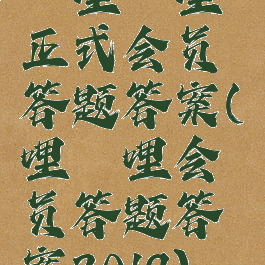 正式会员
答题答案(
哩 哩会
员答题答
案